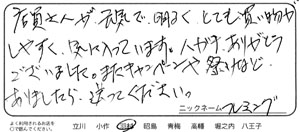 店員さんが元気で、明るく、とても買い物が
しやすく、気に入っています。ハガキ、ありがとう
ございました。またキャンペーンや祭りなど、
ありましたら、送ってください。
ニックネーム フレミング
よく利用されるお店を
○で囲んでください。
立川 小作 昭島 青梅 高幡 堀之内 八王子